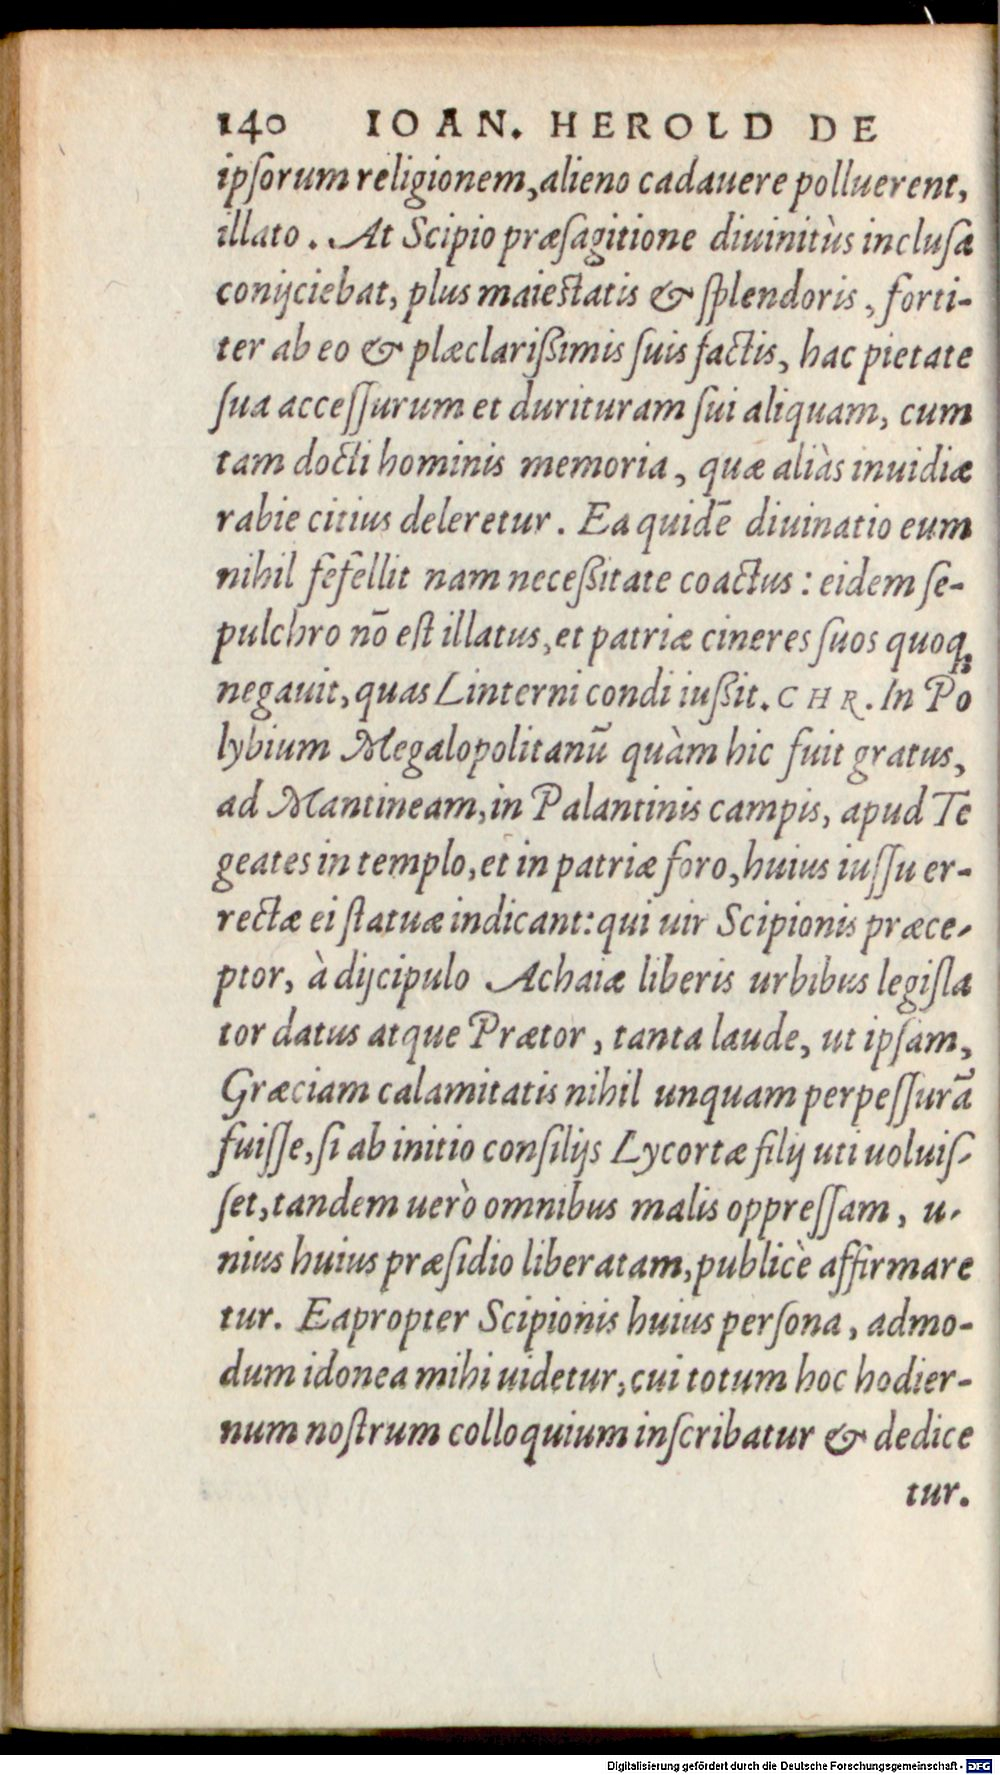 140 IOAN. HEROLD DE
ipſorum religionem, alieno cadauere polluerent,
illato. At Scipio præſagitione diuinitùs incluſa
conijciebat, plus maieſtatis & ſplendoris, forti-
ter ab eo & plæclarißimis ſuis factis, hac pietate
ſua acceſſurum et durituram ſui aliquam, cum
tam docti hominis memoria, quæ aliàs inuidiæ
rabie citius deleretur. Ea quidē diuinatio eum
nihil fefellit nam neceßitate coactus: eidem ſe-
pulchro nō eſt illatus, et patriæ cineres ſuos quoq;
negauit, quas Linterni condi iußit. CHR. In Po
lybium Megalopolitanū quàm hic fuit gratus,
ad Mantineam, in Palantinis campis, apud Te
geates in templo, et in patriæ foro, huius iuſſu er-
rectæ ei ſtatuæ indicant: qui uir Scipionis præce-
ptor, à dijcipulo Achaiæ liberis urbibus legiſla
tor datus atque Prætor, tanta laude, ut ipſam,
Græciam calamitatis nihil unquam perpeſſurā
fuiſſe, ſi ab initio conſilijs Lycortæ filij uti uoluiſ-
ſet, tandem uerò omnibus malis oppreſſam, u-
nius huius præſidio liberatam, publicè affirmare
tur. Eapropter Scipionis huius perſona, admo-
dum idonea mihi uidetur, cui totum hoc hodier-
num noſtrum colloquium inſcribatur & dedice
tur.
Digitalisierung gefördert durch die Deutsche Forschungsgemeinschaft - DFG